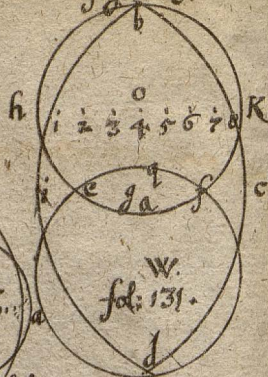 b
h o K
1 2 3 4 5 6 7 8
q
e g a f c
W.
fol: 131.
a
d